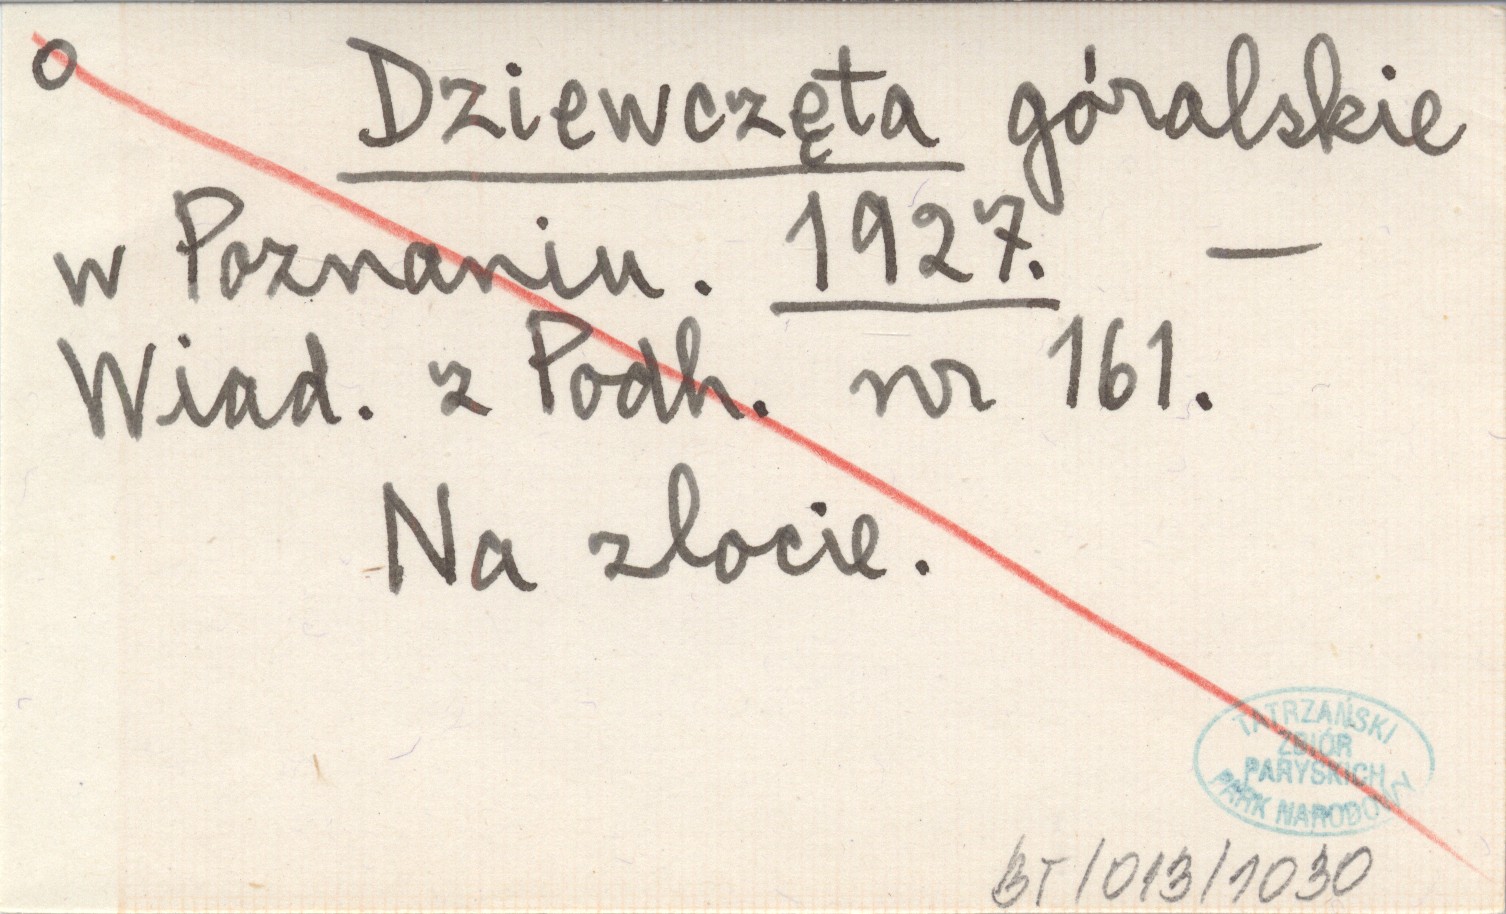 o Dziewczęta góralskie
w Poznaniu. 1927. —
Wiad. z Podh. nr 161.
Na zlocie.
TATRZAŃSKI
ZBIÓR
PARYSKICH
PARK NARODOWY
BT/013/1030